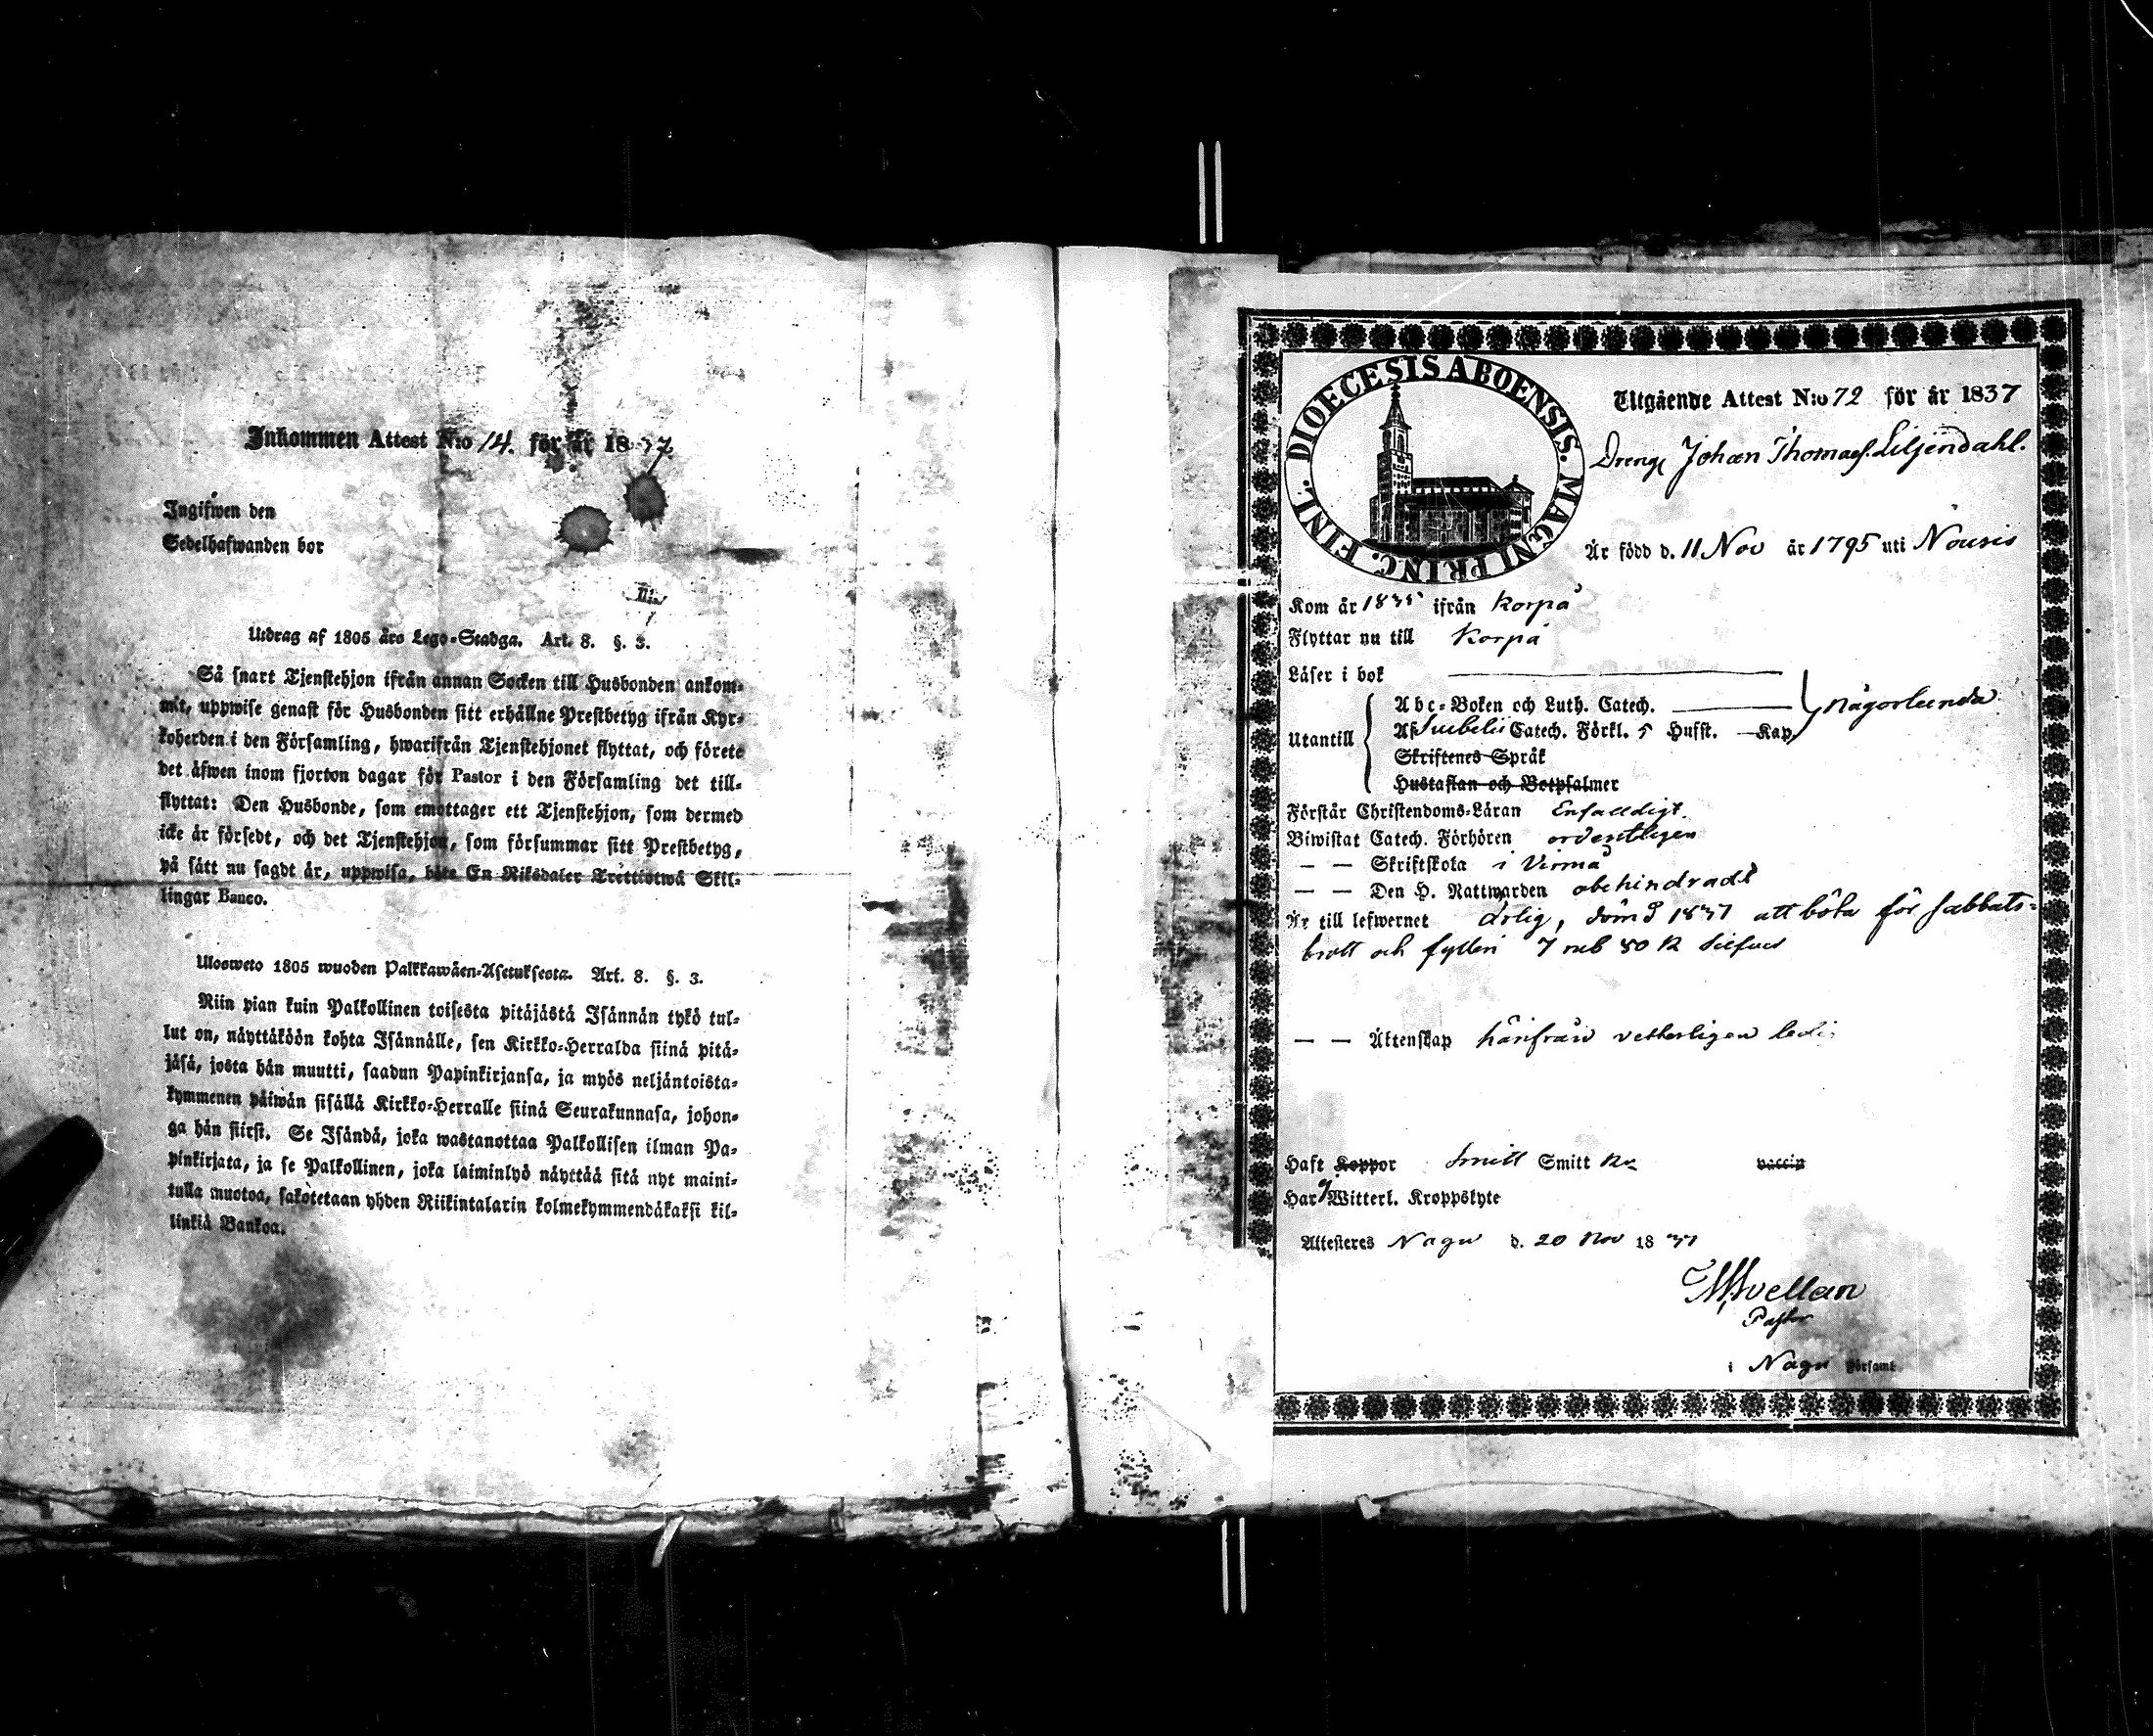 Inkommen Attest N:o 14. för år 1837
Ingifwen den
Sedelhafwanden bor
Utdrag af 1805 års Lego-Stadga. Art. 8. §. 3.
Så snart Tjenstehjon ifrån annan Socken till Husbonden ankom-
mit, uppwise genast för Husbonden sitt erhållne Prestbetyg ifrån Kyr-
koherden i den Församling, hwarifrån Tjenstehjonet flyttat, och förete
det äfwen inom fjorton dagar för Pastor i den Församling det till-
flyttat: Den Husbonde, som emottager ett Tjenstehjon, som dermed
icke är försedt, och det Tjenstehjon, som försummar sitt Prestbetyg,
på sätt nu sagdt är, uppwisa, böte En Riksdaler Trettiotwå Skil-
lingar Banco.
Ulosweto 1805 wuoden Palkkawäen-Asetuksesta. Art. 8. §. 3.
Niin pian kuin Palkollinen toisesta pitäjästä Isännän tykö tul-
lut on, näyttäköön kohta Isännälle, sen Kirkko-Herralda siinä pitä-
jäsä, josta hän muutti, saadun Papinkirjansa, ja myös neljäntoista-
kymmenen päiwän sisällä Kirkko-Herralle siinä Seurakunnasa, johon-
ga hän siirst. Se Isändä, joka wastanottaa Palkollisen ilman Pa-
pinkirjata, ja se Palkollinen, joka laiminlyö näyttää sitä nyt maini-
tulla muotoa, sakotetaan yhden Riikintalarin kolmekymmendäkaksi kil-
linkiä Bankoa.
DIOECESIS ABOENSIS. MAGNI PRINC. FINL.
Utgående Attest N:o 72 för år 1837
Dreng Johan Thomass. Liljendahl.
Är född d. 11 Nov år 1795 uti Nousis
Kom år 1835 ifrån Korpå
Flyttar nu till Korpå
Läser i bok
Utantill
Abc-Boken och Luth. Catech.
Af Svebelii Catech. Förkl. 5 Hufst. Kap.
någorlunda
Skriftenes Språk
Hustaflan och Botpsalmer
Förstår Christendoms-Läran Enfalldigt.
Biwistat Catech. Förhören ordentligen
— — Skriftskola i Virmo
— — Den H. Nattwarden obehindradt
Är till lefwernet ärlig, dömd 1837 att böta för sabbats-
brott och fylleri 7 rub 80 k silfver
— — Äktenskap härifrån vetterligen ledig
Haft Koppor Smitt Smitt vaccin
Har ej Witterl. Kroppslyte
Attesteres Nagu d. 20 Nov 1837
Pastor
i Nagu Församl.